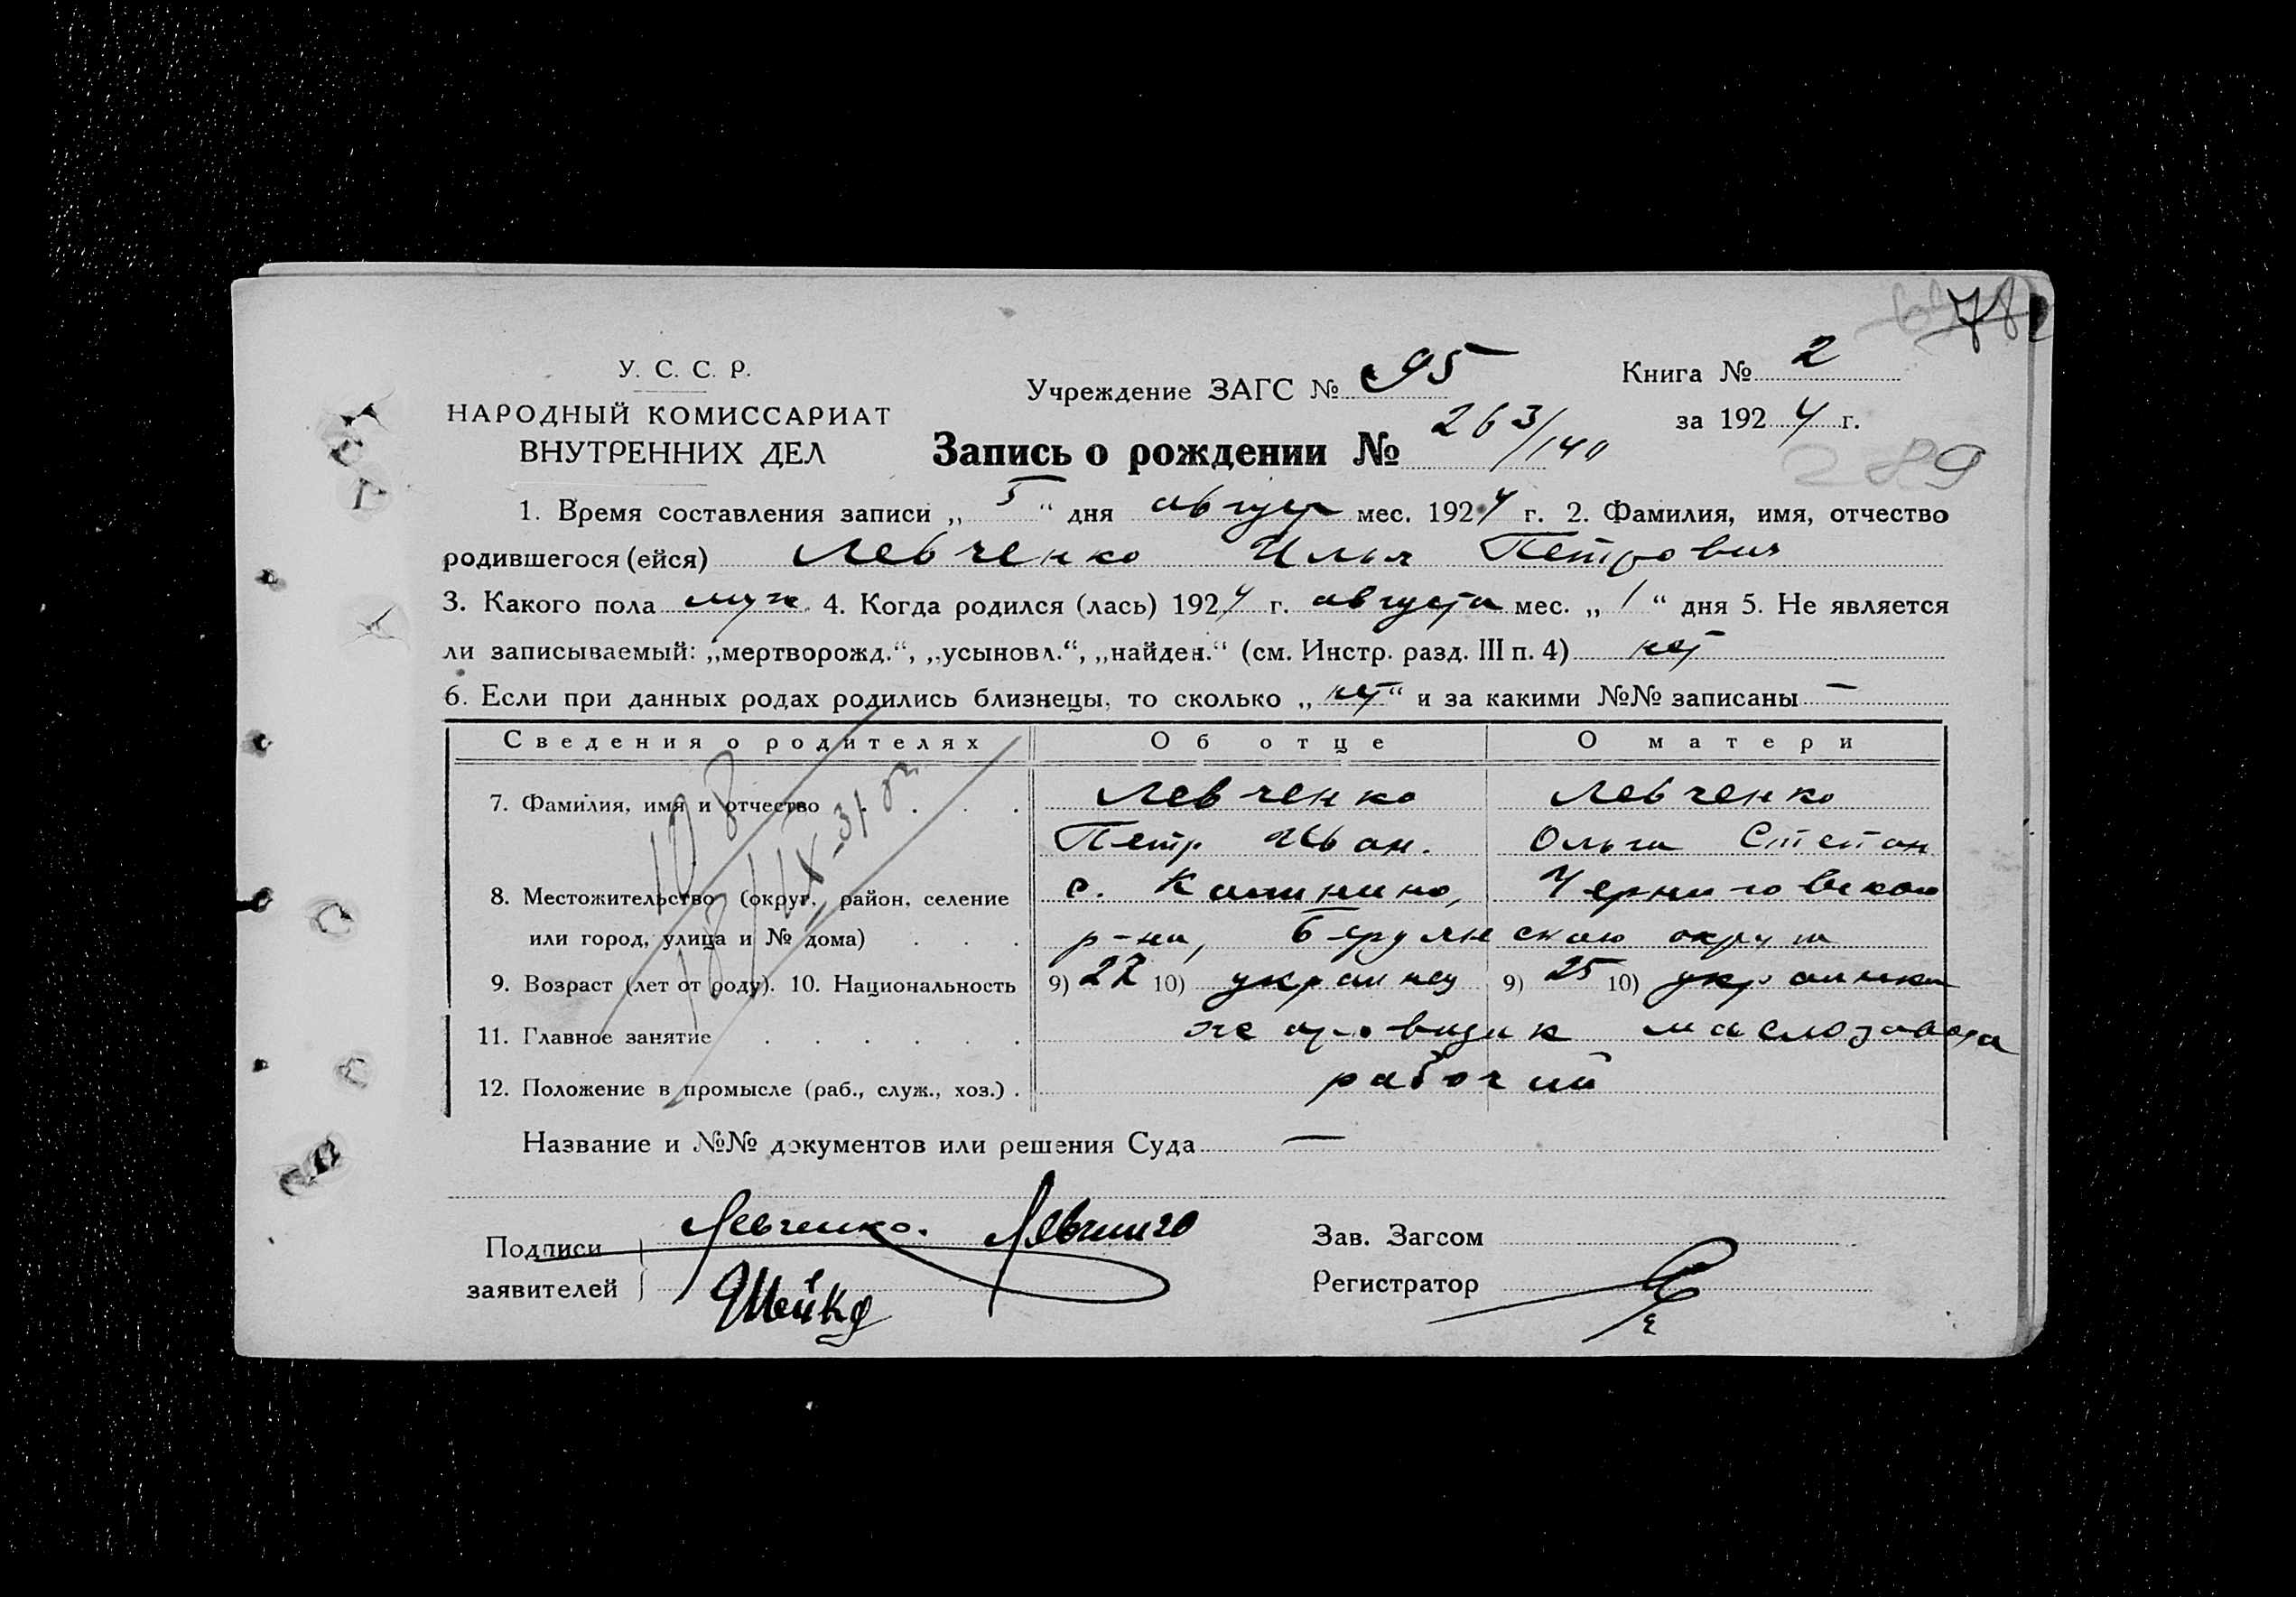 78
У. С. С. Р.
НАРОДНЫЙ КОМИССАРИАТ
ВНУТРЕННИХ ДЕЛ
Учреждение ЗАГС № 95
Книга № 2
за 1924 г.
Запись о рождении № 263/140
289
1. Время составления записи „5“ дня август мес. 1924 г. 2. Фамилия, имя, отчество
родившегося (ейся) Левченко Илья Петрович
3. Какого пола муж. 4. Когда родился (лась) 1924 г. августа мес. „1“ дня 5. Не является
ли записываемый: „мертворожд.“, „усыновл.“, „найден.“ (см. Инстр. разд. III п. 4) нет
6. Если при данных родах родились близнецы, то сколько „нет“ и за какими №№ записаны —
Сведения о родителях Об отце О матери
7. Фамилия, имя и отчество Левченко Левченко
Петр Иван. Ольга Степан
8. Местожительство (округ, район, селение с. Черниговского
или город, улица и № дома) р-на, округа
9. Возраст (лет от роду). 10. Национальность 9) 27 10) украинец 9) 25 10) украинка
11. Главное занятие маслозавода
12. Положение в промысле (раб., служ., хоз.) рабочий
Название и №№ документов или решения Суда —
Подписи Левченко. Левченко
заявителей Шейко
Зав. Загсом
Регистратор